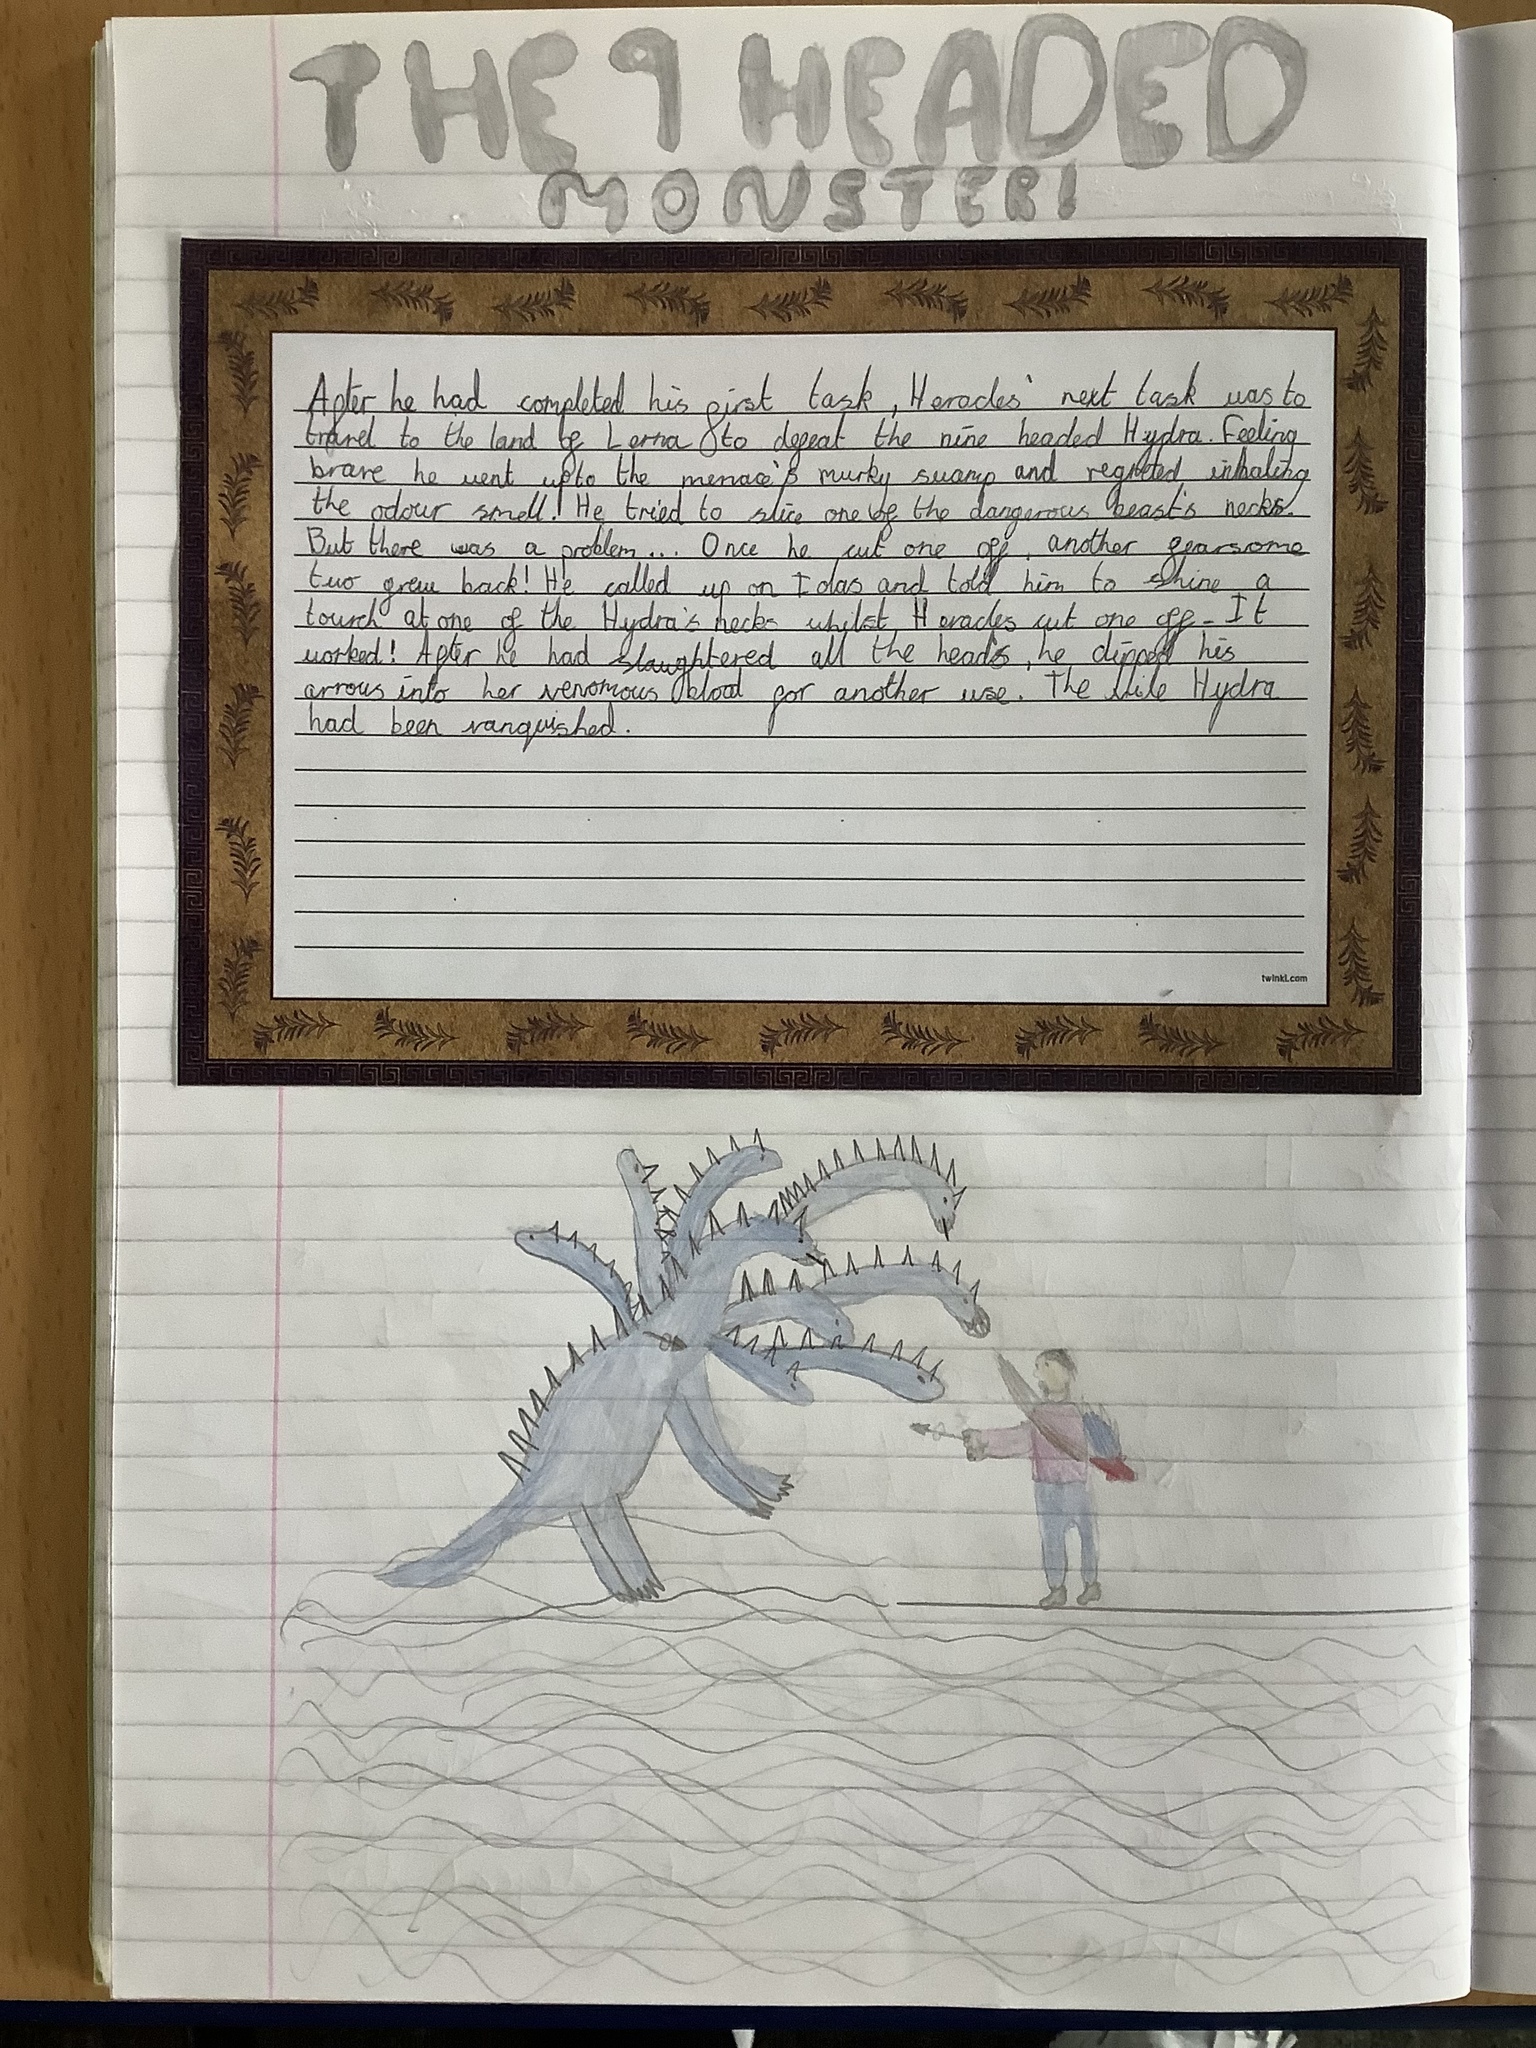 THE 9 HEADED
MONSTER!
After he had completed his first task, Heracles' next task was to
travel to the land of Lerna to defeat the nine headed Hydra. Feeling
brave he went upto the menace's murky swamp and regreted inhaling
the odour smell! He tried to slice one of the dangerous beast's necks.
But there was a problem... Once he cut one off, another fearsome
two grew back! He called up on Iolas and told him to shine a
tourch at one of the Hydra's necks whilst Heracles cut one off. It
worked! After he had slaughtered all the heads, he dipped his
arrows into her venomous blood for another use. The vile Hydra
had been vanquished.
twinkl.com